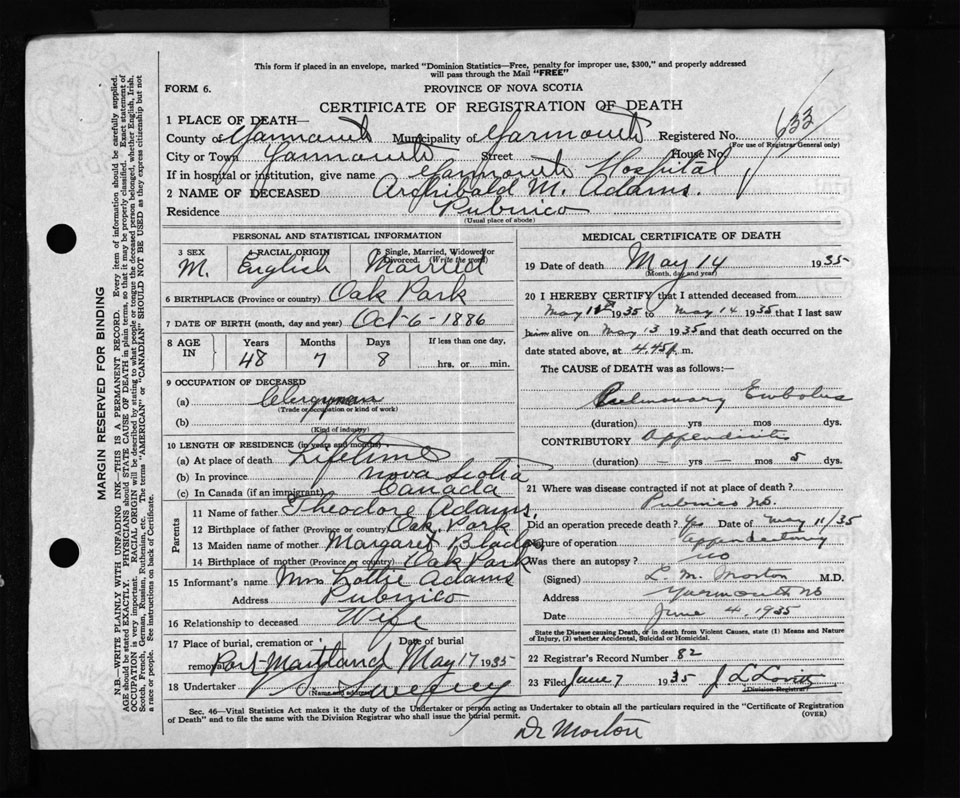 This form if placed in an envelope, marked "Dominion Statistics—Free, penalty for improper use, $300," and properly addressed
will pass through the Mail "FREE"
FORM 6.
PROVINCE OF NOVA SCOTIA
CERTIFICATE OF REGISTRATION OF DEATH
1 PLACE OF DEATH—
County of Yarmouth Municipality of Yarmouth Registered No. 633
(For use of Registrar General only)
City or Town Yarmouth Street House No.
If in hospital or institution, give name Yarmouth Hospital
2 NAME OF DECEASED Archibald M. Adams.
Residence Pubnico
(Usual place of abode)
PERSONAL AND STATISTICAL INFORMATION
3 SEX M. 4 RACIAL ORIGIN English 5 Single, Married, Widowed or Divorced. (Write the word) Married
6 BIRTHPLACE (Province or country) Oak Park
7 DATE OF BIRTH (month, day and year) Oct-6-1886
8 AGE IN Years 48 Months 7 Days 8 If less than one day, hrs. or min.
9 OCCUPATION OF DECEASED
(a) Clergyman
(Trade or occupation or kind of work)
(b)
(Kind of industry)
10 LENGTH OF RESIDENCE (in years and months)
(a) At place of death Lifetime
(b) In province Nova Scotia
(c) In Canada (if an immigrant) Canada
Parents
11 Name of father Theodore Adams,
12 Birthplace of father (Province or country) Oak Park
13 Maiden name of mother Margaret
14 Birthplace of mother (Province or country) Oak Park
15 Informant's name Mrs Lottie Adams
Address Pubnico
16 Relationship to deceased Wife
17 Place of burial, cremation or removal Port Maitland Date of burial May 17 1935
18 Undertaker Sweeney
(Name and address)
MEDICAL CERTIFICATE OF DEATH
19 Date of death May 14 1935
(Month, day and year)
20 I HEREBY CERTIFY that I attended deceased from
May 1935 to May 14 1935 that I last saw
him alive on May 13 1935 and that death occurred on
date stated above, at 4.45 p. m.
The CAUSE of DEATH was as follows:—
Pulmonary Embolus
(duration) yrs mos dys.
CONTRIBUTORY Appendicitis
(duration) — yrs — mos 5 dys.
21 Where was disease contracted if not at place of death? Pubnico NS.
Did an operation precede death? Yes Date of May 11/35
Nature of operation appendectomy
Was there an autopsy? no
(Signed) L. M. Morton M.D.
Address Yarmouth NS
Date June 4, 1935
State the Disease causing Death, or in death from Violent Causes, state (1) Means and Nature
of Injury, (2) whether Accidental, Suicidal or Homicidal.
22 Registrar's Record Number 82
23 Filed June 7 1935 J L Lovitt
(Division Registrar)
Sec. 46—Vital Statistics Act makes it the duty of the Undertaker or person acting as Undertaker to obtain all the particulars required in the "Certificate of Registration
of Death" and to file the same with the Division Registrar who shall issue the burial permit.
(OVER)
Dr Morton
MARGIN RESERVED FOR BINDING
N.B.—WRITE PLAINLY WITH UNFADING INK—THIS IS A PERMANENT RECORD. Every item of information should be carefully supplied.
AGE should be stated EXACTLY. PHYSICIANS should STATE CAUSE OF DEATH in plain terms, so that it may be properly classified. Exact statement of
OCCUPATION is very important. RACIAL ORIGIN will be described by stating to what people or tongue the deceased person belonged, whether English, Irish,
Scotch, French, German, Russian, Ruthenian, etc. The terms "AMERICAN" or "CANADIAN" SHOULD NOT BE USED as they express citizenship but not
a race or people. See instructions on back of Certificate.